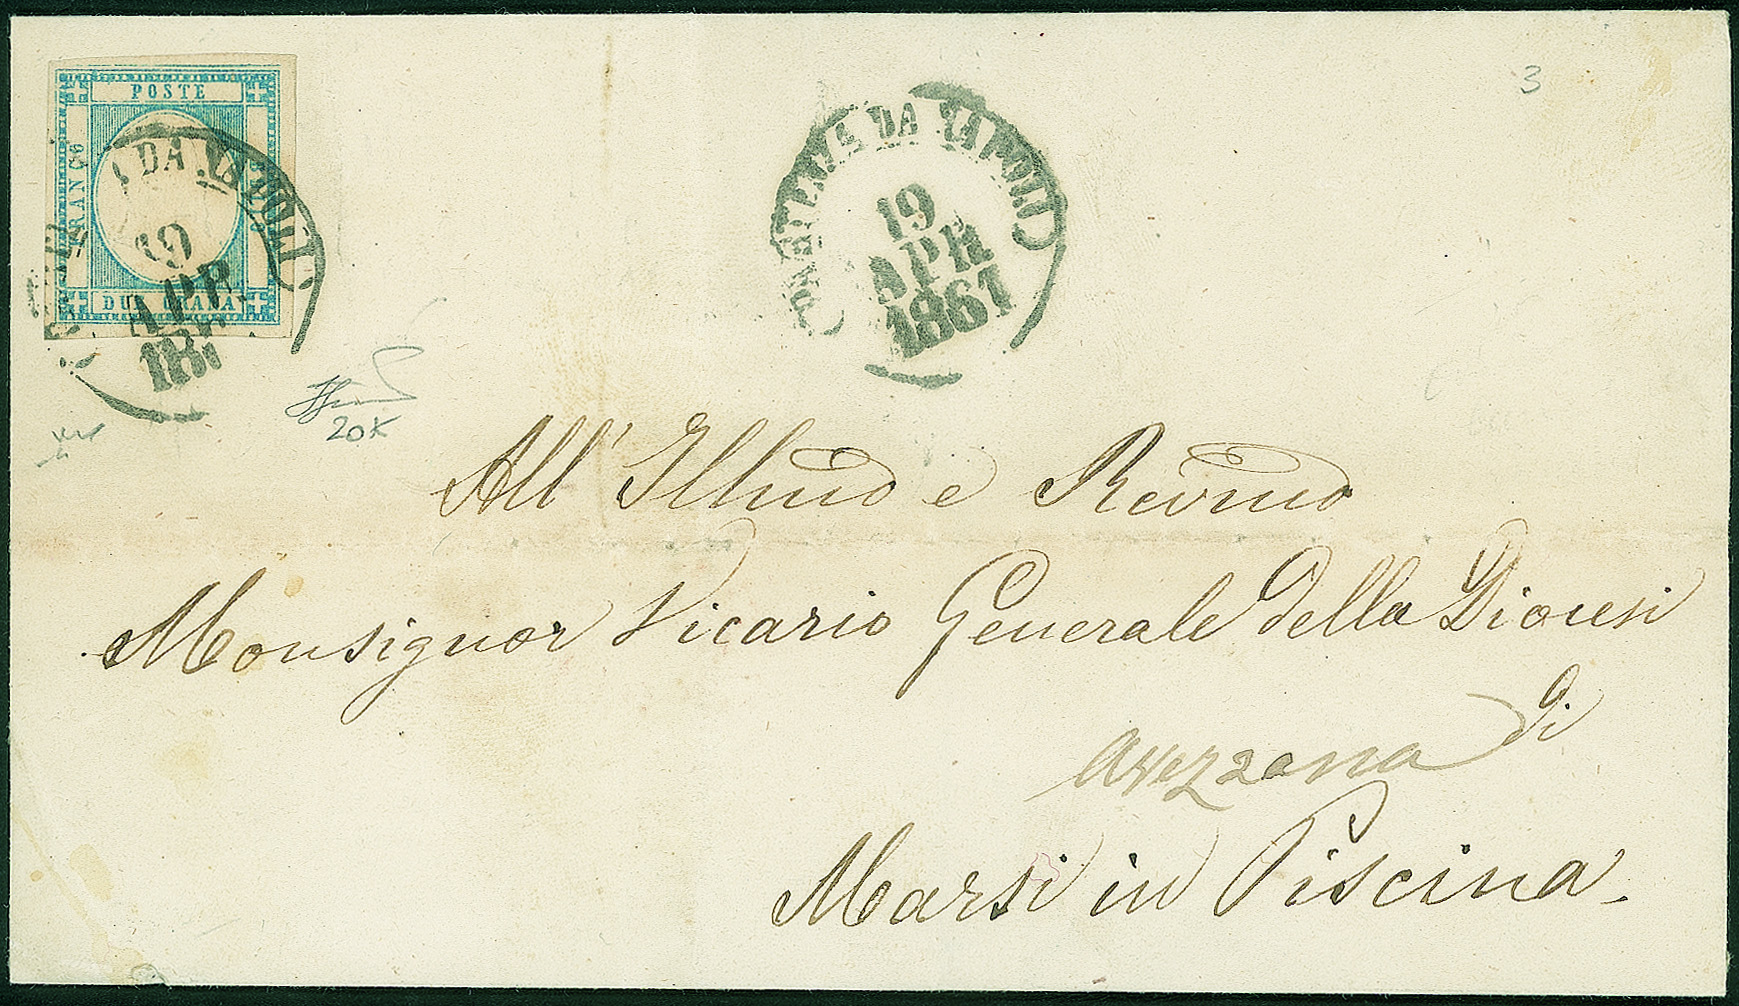 3
POSTE
FRANCO
BOLLO
DUE GRANA
DA NAPOLI
19
APR
18
(PARTENZA DA NAPOLI)
19
APR
1861
20K
All' Illmo e Revmo
Monsignor Vicario Generale della Diocesi
di
Avezzana
Marsi in Piscina.